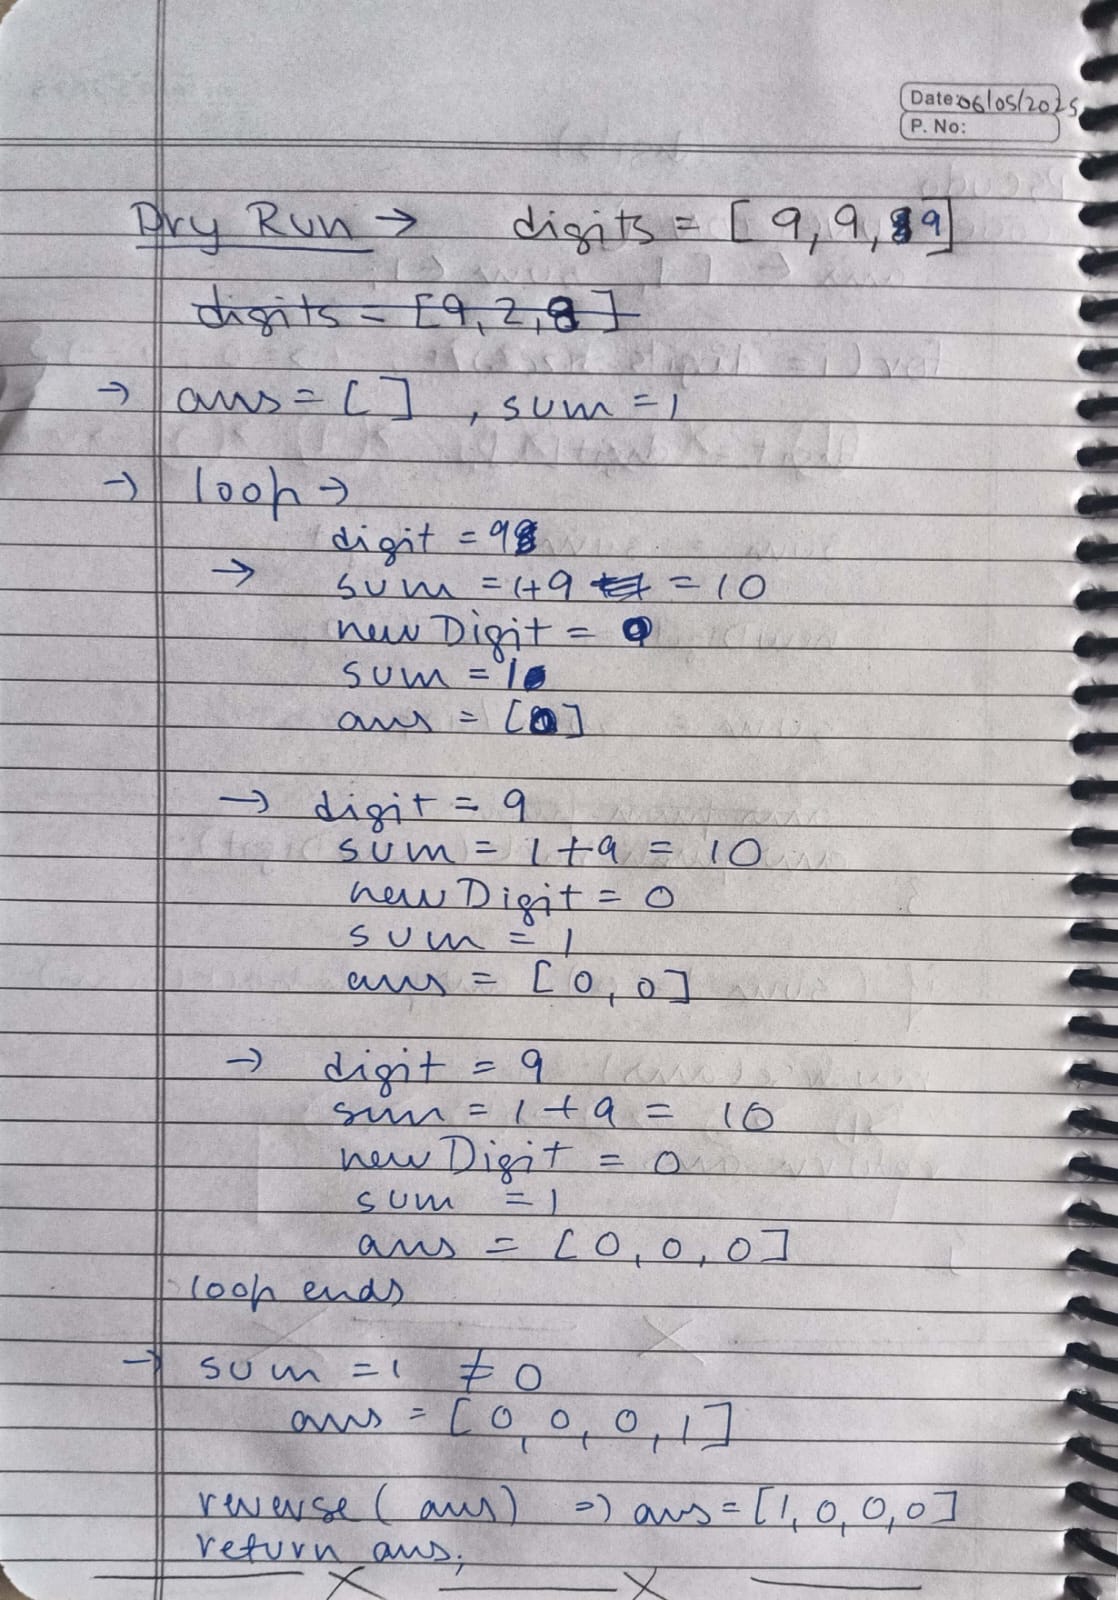 Date: 06/05/2025
P. No:
Dry Run → digits = [9, 9, 9]
digits = [9, 2, 8]
→ ans = [ ] , sum = 1
→ loop →
digit = 9
→ sum = 1+9 = 10
new Digit = 0
sum = 1
ans = [0]
→ digit = 9
sum = 1 + 9 = 10
new Digit = 0
sum = 1
ans = [0, 0]
→ digit = 9
sum = 1 + 9 = 10
new Digit = 0
sum = 1
ans = [0, 0, 0]
loop ends
→ sum = 1 ≠ 0
ans = [0, 0, 0, 1]
reverse (ans) => ans = [1, 0, 0, 0]
return ans;